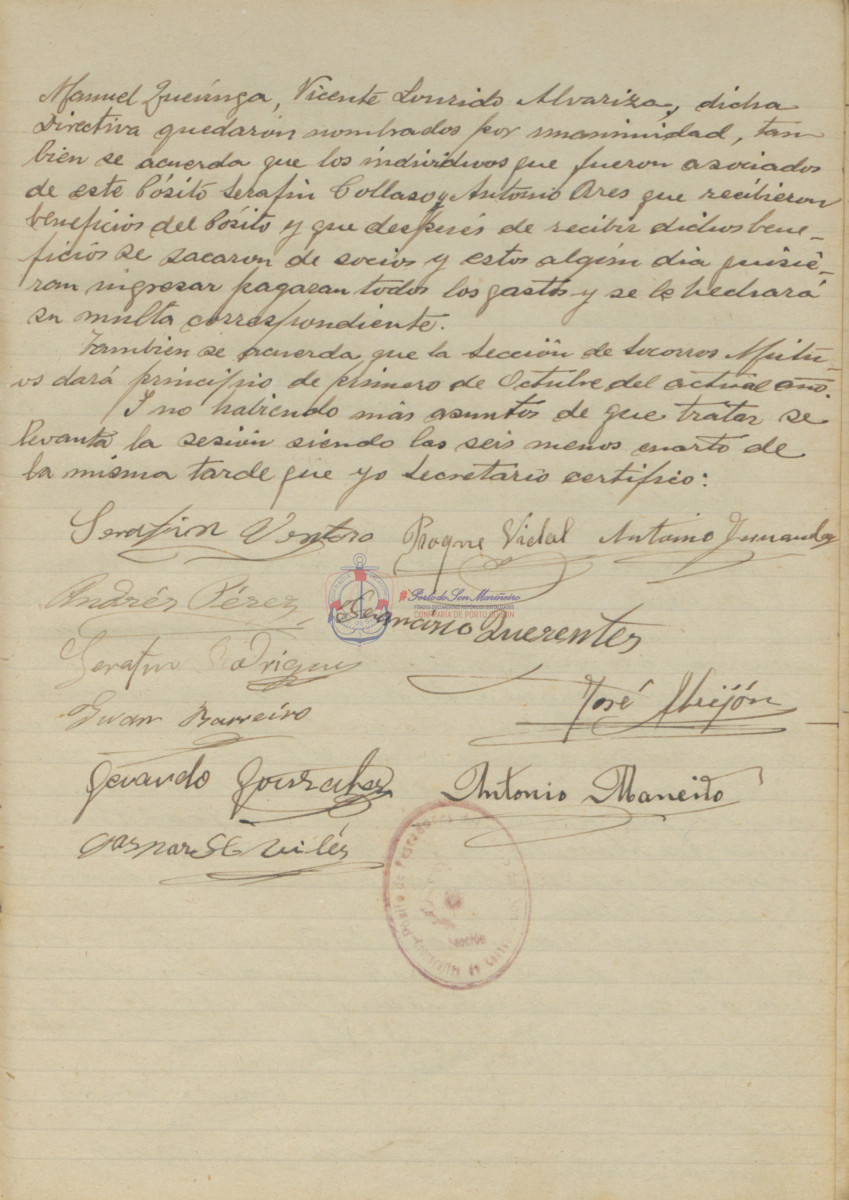 Manuel Queiruga, Vicente Lourido Alvariza, dicha
Directiva quedarón nombrados por unanimidad, tam
bien se acuerda que los individuos que fueron asociados
de este Pósito Serafin Collaso y Antonio Ares que recibieron
beneficios del Pósito y que después de recibir dichos bene-
ficios se sacaron de socios y estos algún dia quisie-
ran ingresar pagaran todos los gastos y se le hechará
su multa correspondiente.
Tambien se acuerda que la Sección de Socorros Mútu-
os dará principio de primero de Octubre del actual año.
I no habiendo más asuntos de que tratar se
levanta la sesión siendo las seis menos cuarto de
la misma tarde que yo Secretario certifico:
Serafin Ventro Roque Vidal Antonio Fernandez
Andrés Pérez
Porto do Son Mariñeiro
CONFRARÍA DE PORTO DO SON
Ignacio Querentes
Serafin Rodrigues
José Abeijón
Juan Barreiro
Gerardo Gonzalez
Antonio Maneiro
Gaspar
Pósito de Pescadores